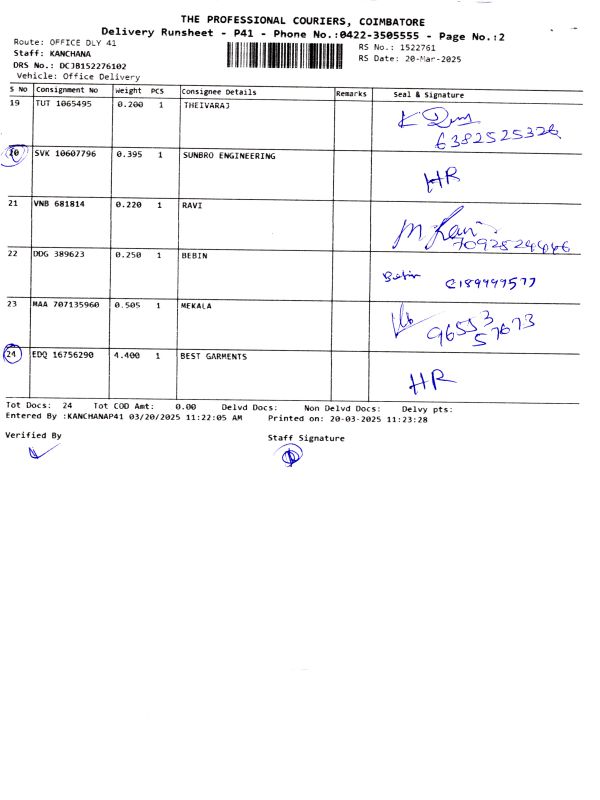 THE PROFESSIONAL COURIERS, COIMBATORE
Delivery Runsheet - P41 - Phone No.:0422-3505555 - Page No.:2
Route: OFFICE DLY 41
RS No.: 1522761
Staff: KANCHANA
RS Date: 20-Mar-2025
DRS No.: DCJB152276102
Vehicle: Office Delivery
S No Consignment No Weight PCS Consignee Details Remarks Seal & Signature
19 TUT 1065495 0.200 1 THEIVARAJ
6382525326
20 SVK 10607796 0.395 1 SUNBRO ENGINEERING
HR
21 VNB 681814 0.220 1 RAVI
M. Ravi
7092524446
22 DDG 389623 0.250 1 BEBIN
Bebin
23 MAA 707135960 0.505 1 MEKALA
96553
57673
24 EDQ 16756290 4.400 1 BEST GARMENTS
HR
Tot Docs: 24 Tot COD Amt: 0.00 Delvd Docs: Non Delvd Docs: Delvy pts:
Entered By :KANCHANAP41 03/20/2025 11:22:05 AM Printed on: 20-03-2025 11:23:28
Verified By
Staff Signature